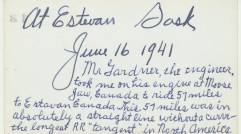 At Estevan Sask
June 16 1941
Mr Gardner, the engineer,
took me on his engine at Moose
Jaw, Canada to ride 57 miles
to Estevan Canada. This 57 miles was in
absolutely a straight line without a curve
the longest RR "tangent" in North America